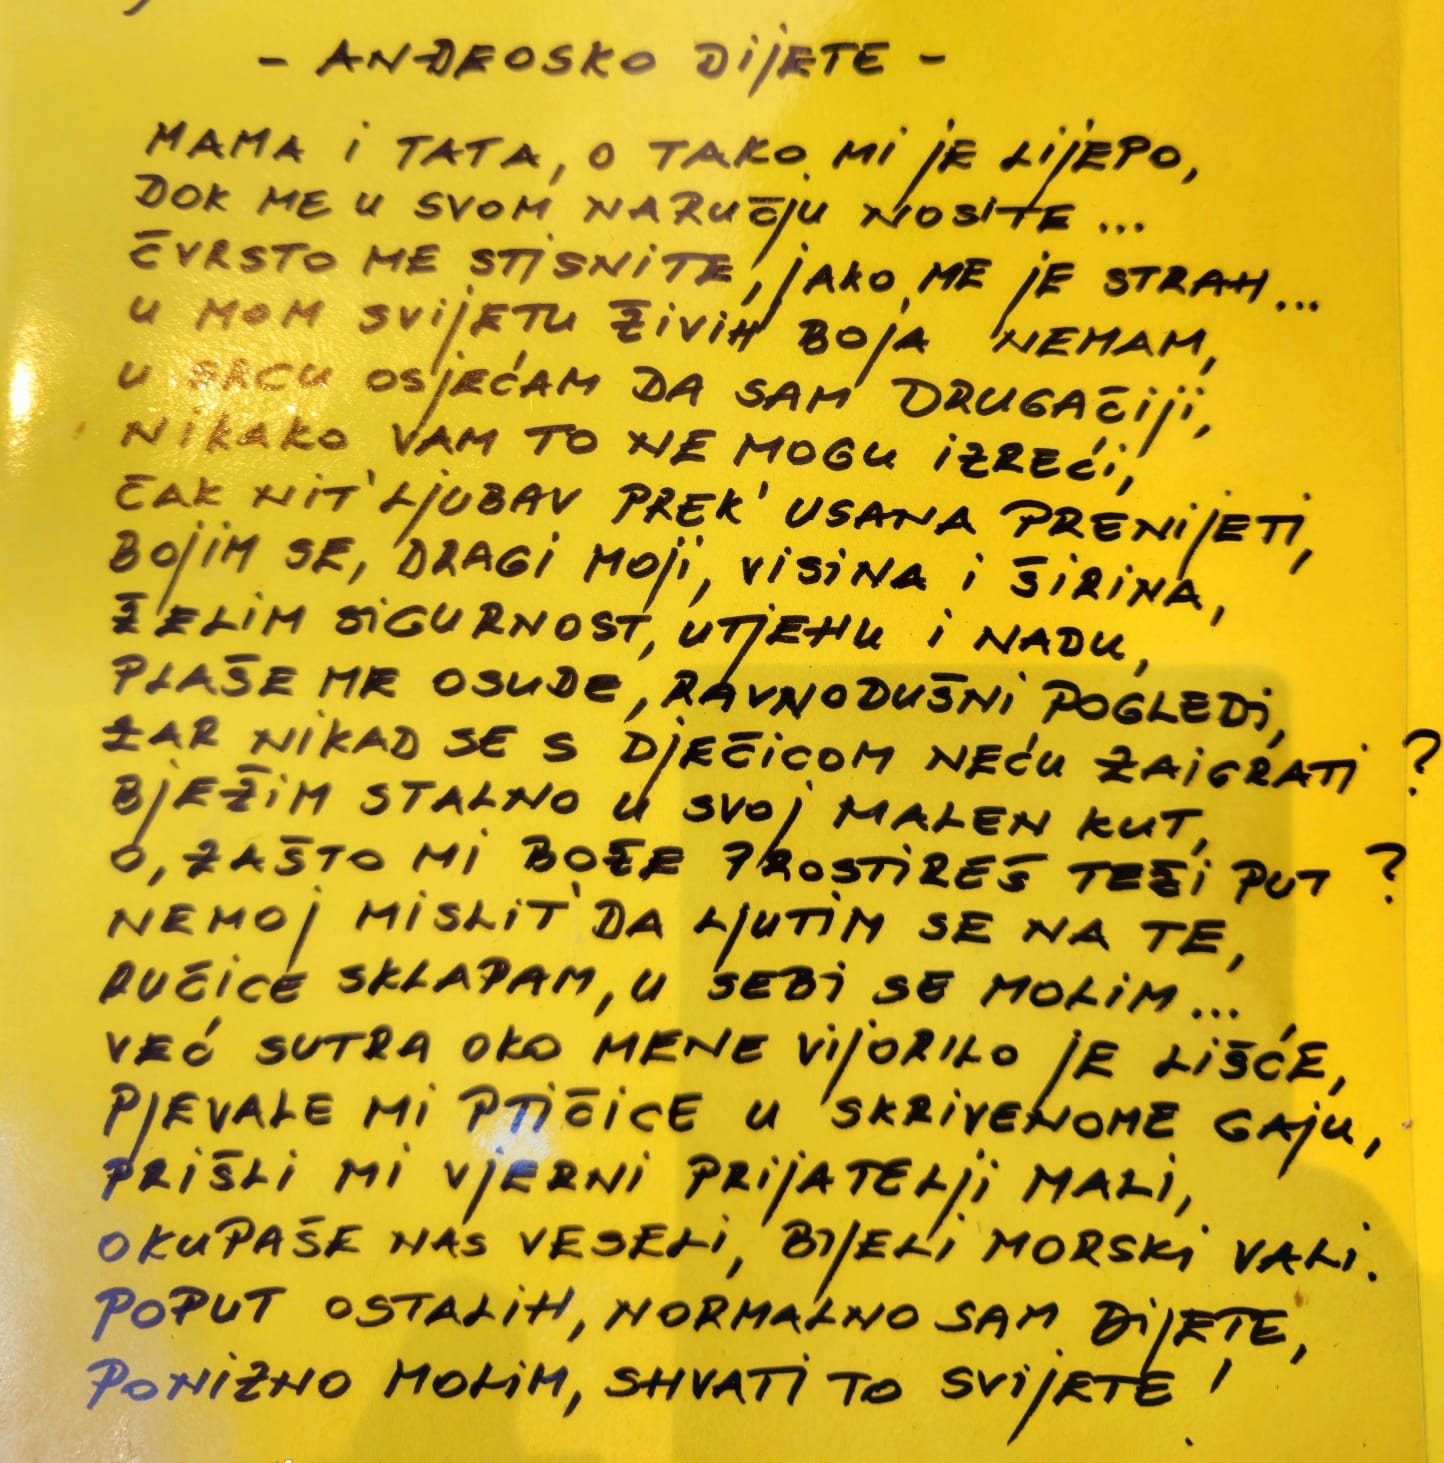 - ANĐEOSKO DIJETE -
MAMA I TATA, O TAKO MI JE LIJEPO,
DOK ME U SVOM NARUČJU NOSITE...
ČVRSTO ME STISNITE, JAKO ME JE STRAH...
U MOM SVIJETU ŽIVIH BOJA NEMAM,
U SRCU OSJEĆAM DA SAM DRUGAČIJI,
NIKAKO VAM TO NE MOGU IZREĆI,
ČAK NIT' LJUBAV PREK' USANA PRENIJETI,
BOJIM SE, DRAGI MOJI, VISINA I ŠIRINA,
ŽELIM SIGURNOST, UTJEHU I NADU,
PLAŠE ME OSUDE, RAVNODUŠNI POGLEDI,
ZAR NIKAD SE S DJEČICOM NEĆU ZAIGRATI?
BJEŽIM STALNO U SVOJ MALEN KUT,
O, ZAŠTO MI BOŽE PROSTIREŠ TEŽI PUT?
NEMOJ MISLIT' DA LJUTIM SE NA TE,
RUČICE SKLAPAM, U SEBI SE MOLIM...
VEĆ SUTRA OKO MENE VIJORILO JE LIŠĆE,
PJEVALE MI PTIČICE U SKRIVENOME GAJU,
PRIŠLI MI VJERNI PRIJATELJI MALI,
OKUPAŠE NAS VESELI, BIJELI MORSKI VALI.
POPUT OSTALIH, NORMALNO SAM DIJETE,
PONIZNO MOLIM, SHVATI TO SVIJETE!